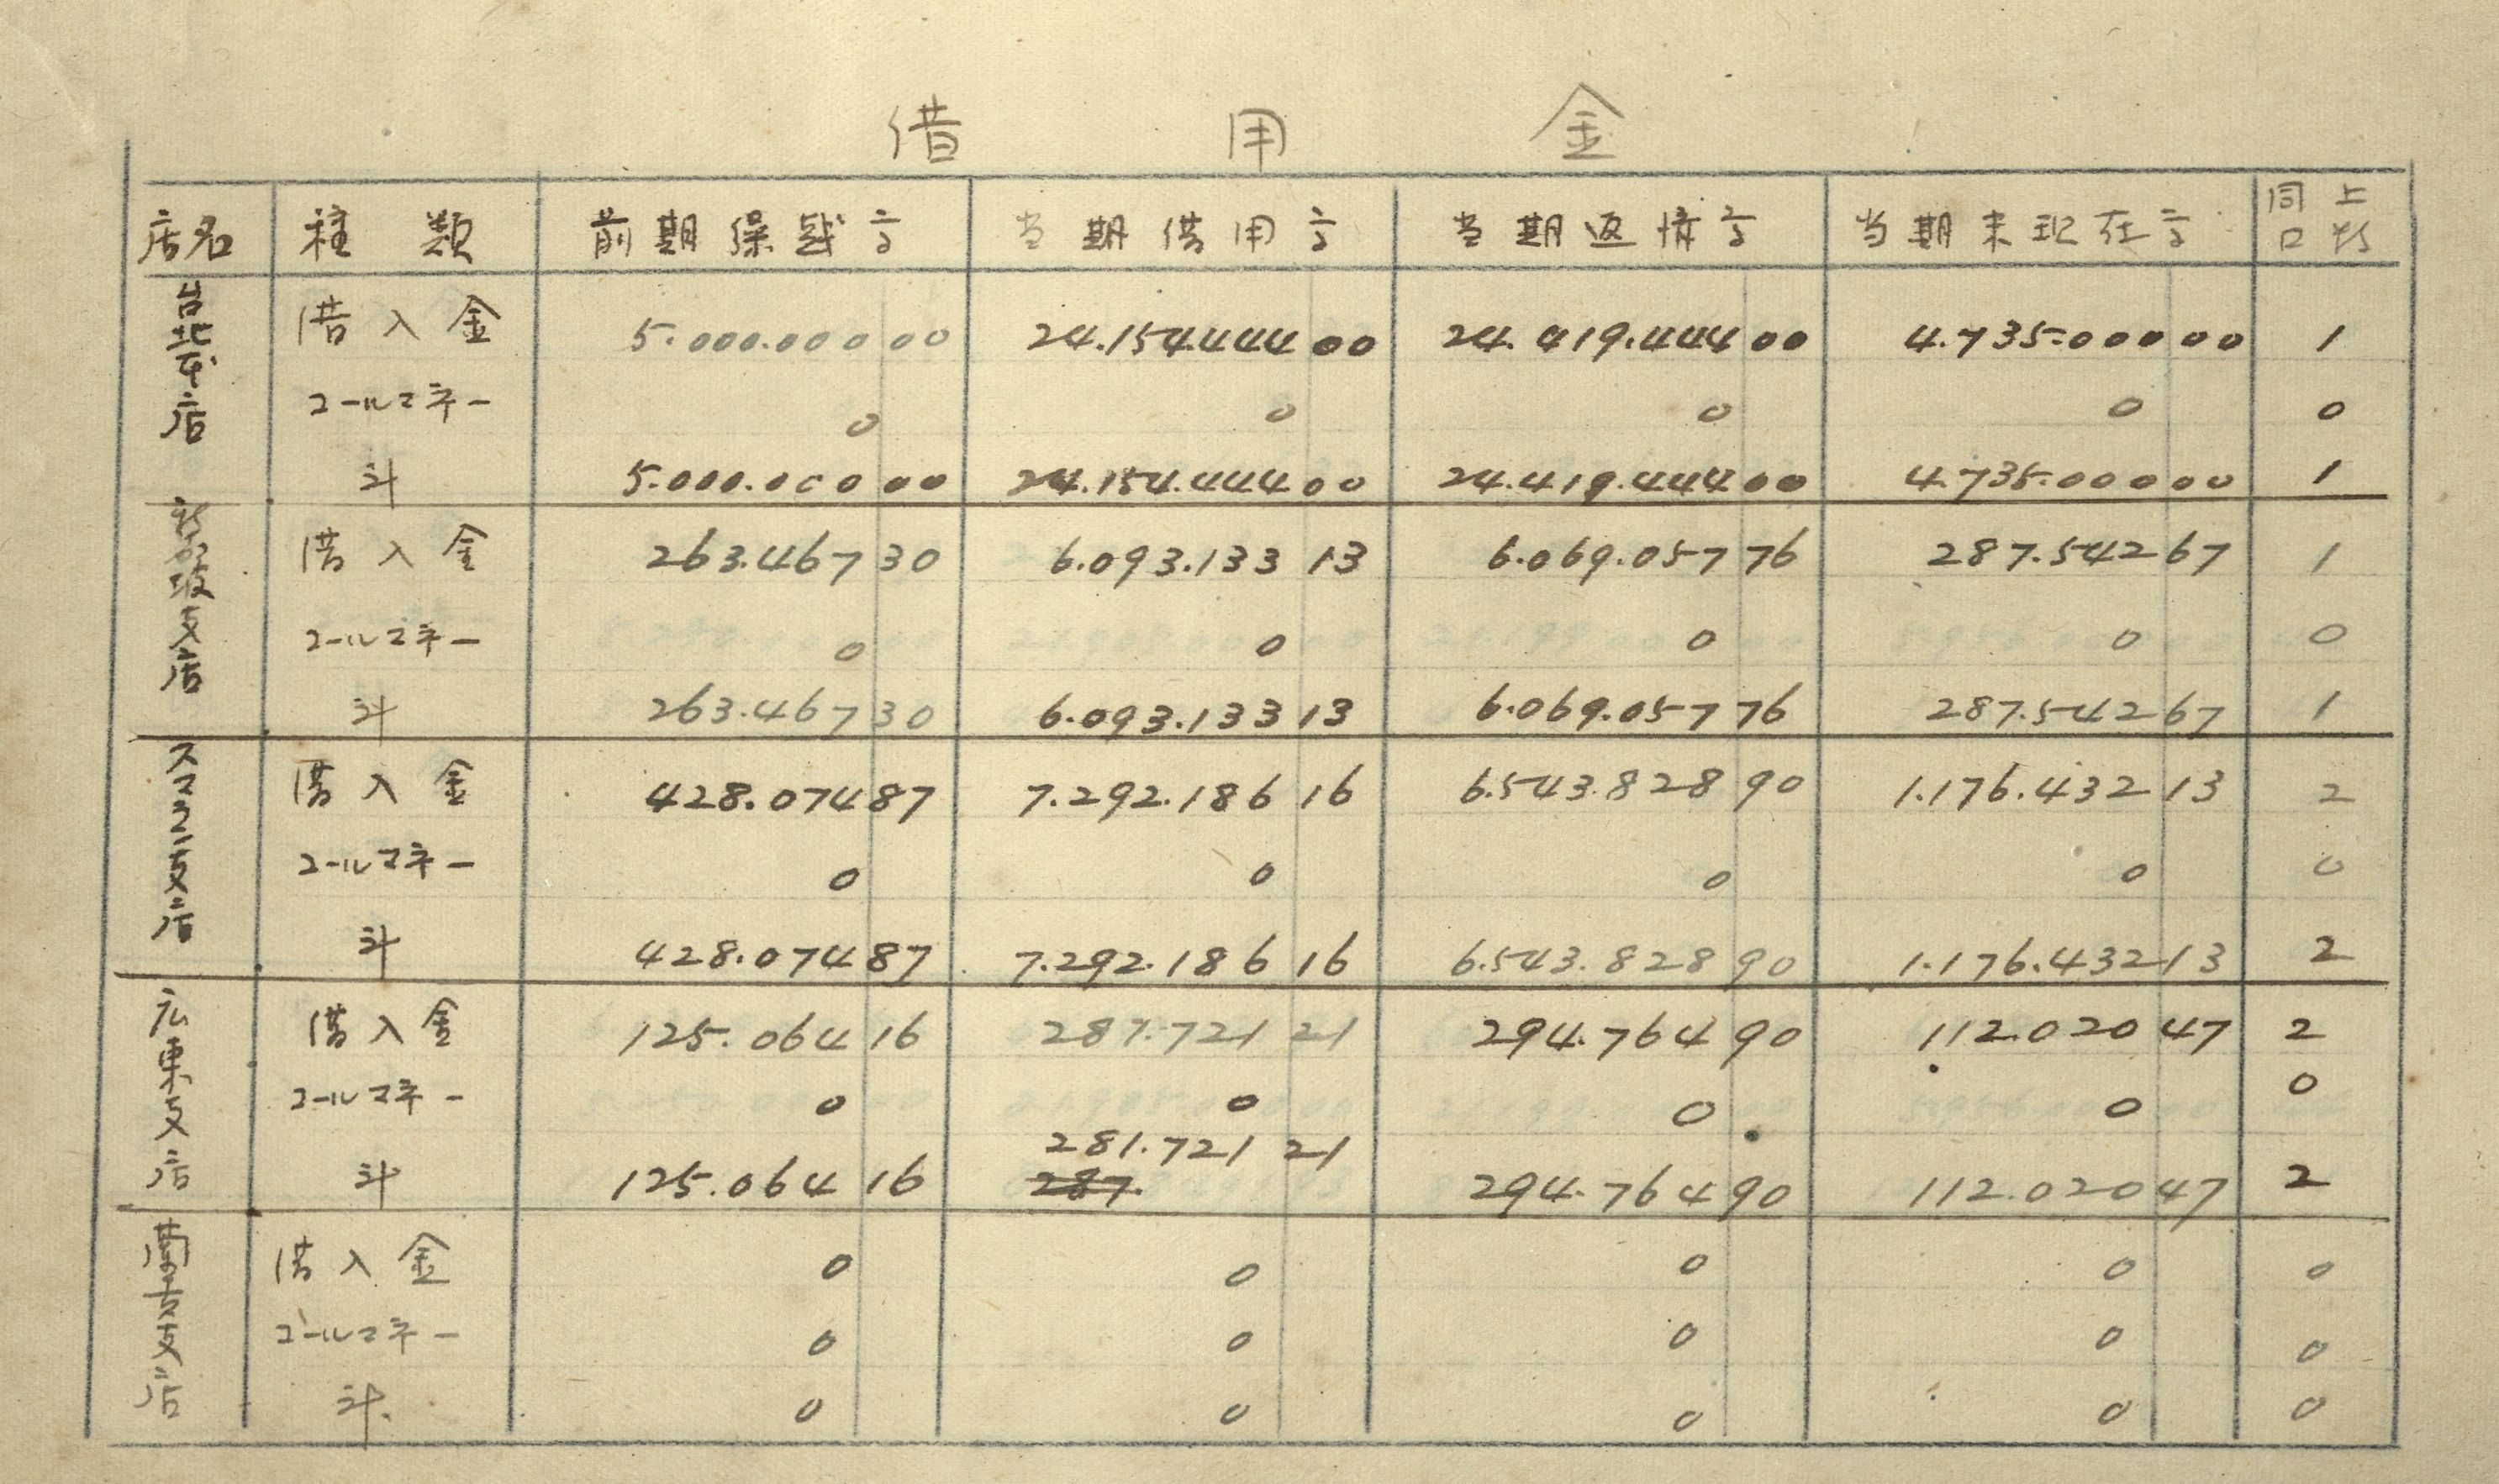 借用金
店名 種類 前期繰越高 当期借用高 当期返償高 当期末現在高 同上口数
台北本店 借入金 5.000.000 00 24.154.444 00 24.419.444 00 4.735.000 00 1
コールマネー 0 0 0 0 0
計 5.000.000 00 24.154.444 00 24.419.444 00 4.735.000 00 1
新嘉坡支店 借入金 263.467 30 6.093.133 13 6.069.057 76 287.542 67 1
コールマネー 0 0 0 0 0
計 263.467 30 6.093.133 13 6.069.057 76 287.542 67 1
スマラン支店 借入金 428.074 87 7.292.186 16 6.543.828 90 1.176.432 13 2
コールマネー 0 0 0 0 0
計 428.074 87 7.292.186 16 6.543.828 90 1.176.432 13 2
広東支店 借入金 125.064 16 287.721 21 294.764 90 112.020 47 2
コールマネー 0 0 0 0 0
281.721 21
計 125.064 16 287. 294.764 90 112.020 47 2
支店 借入金 0 0 0 0 0
コールマネー 0 0 0 0 0
計 0 0 0 0 0